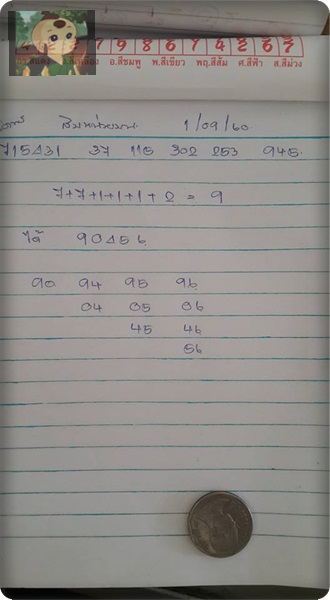 7 9 8 6 7 4 2 6 7
อ.สีชมพู พ.สีเขียว พฤ.สีส้ม ศ.สีฟ้า ส.สีม่วง
1/09/60
715431 37 115 302 253 945
7+7+1+1+1+2 = 9
ได้ 90456
90 94 95 96
04 05 06
45 46
56